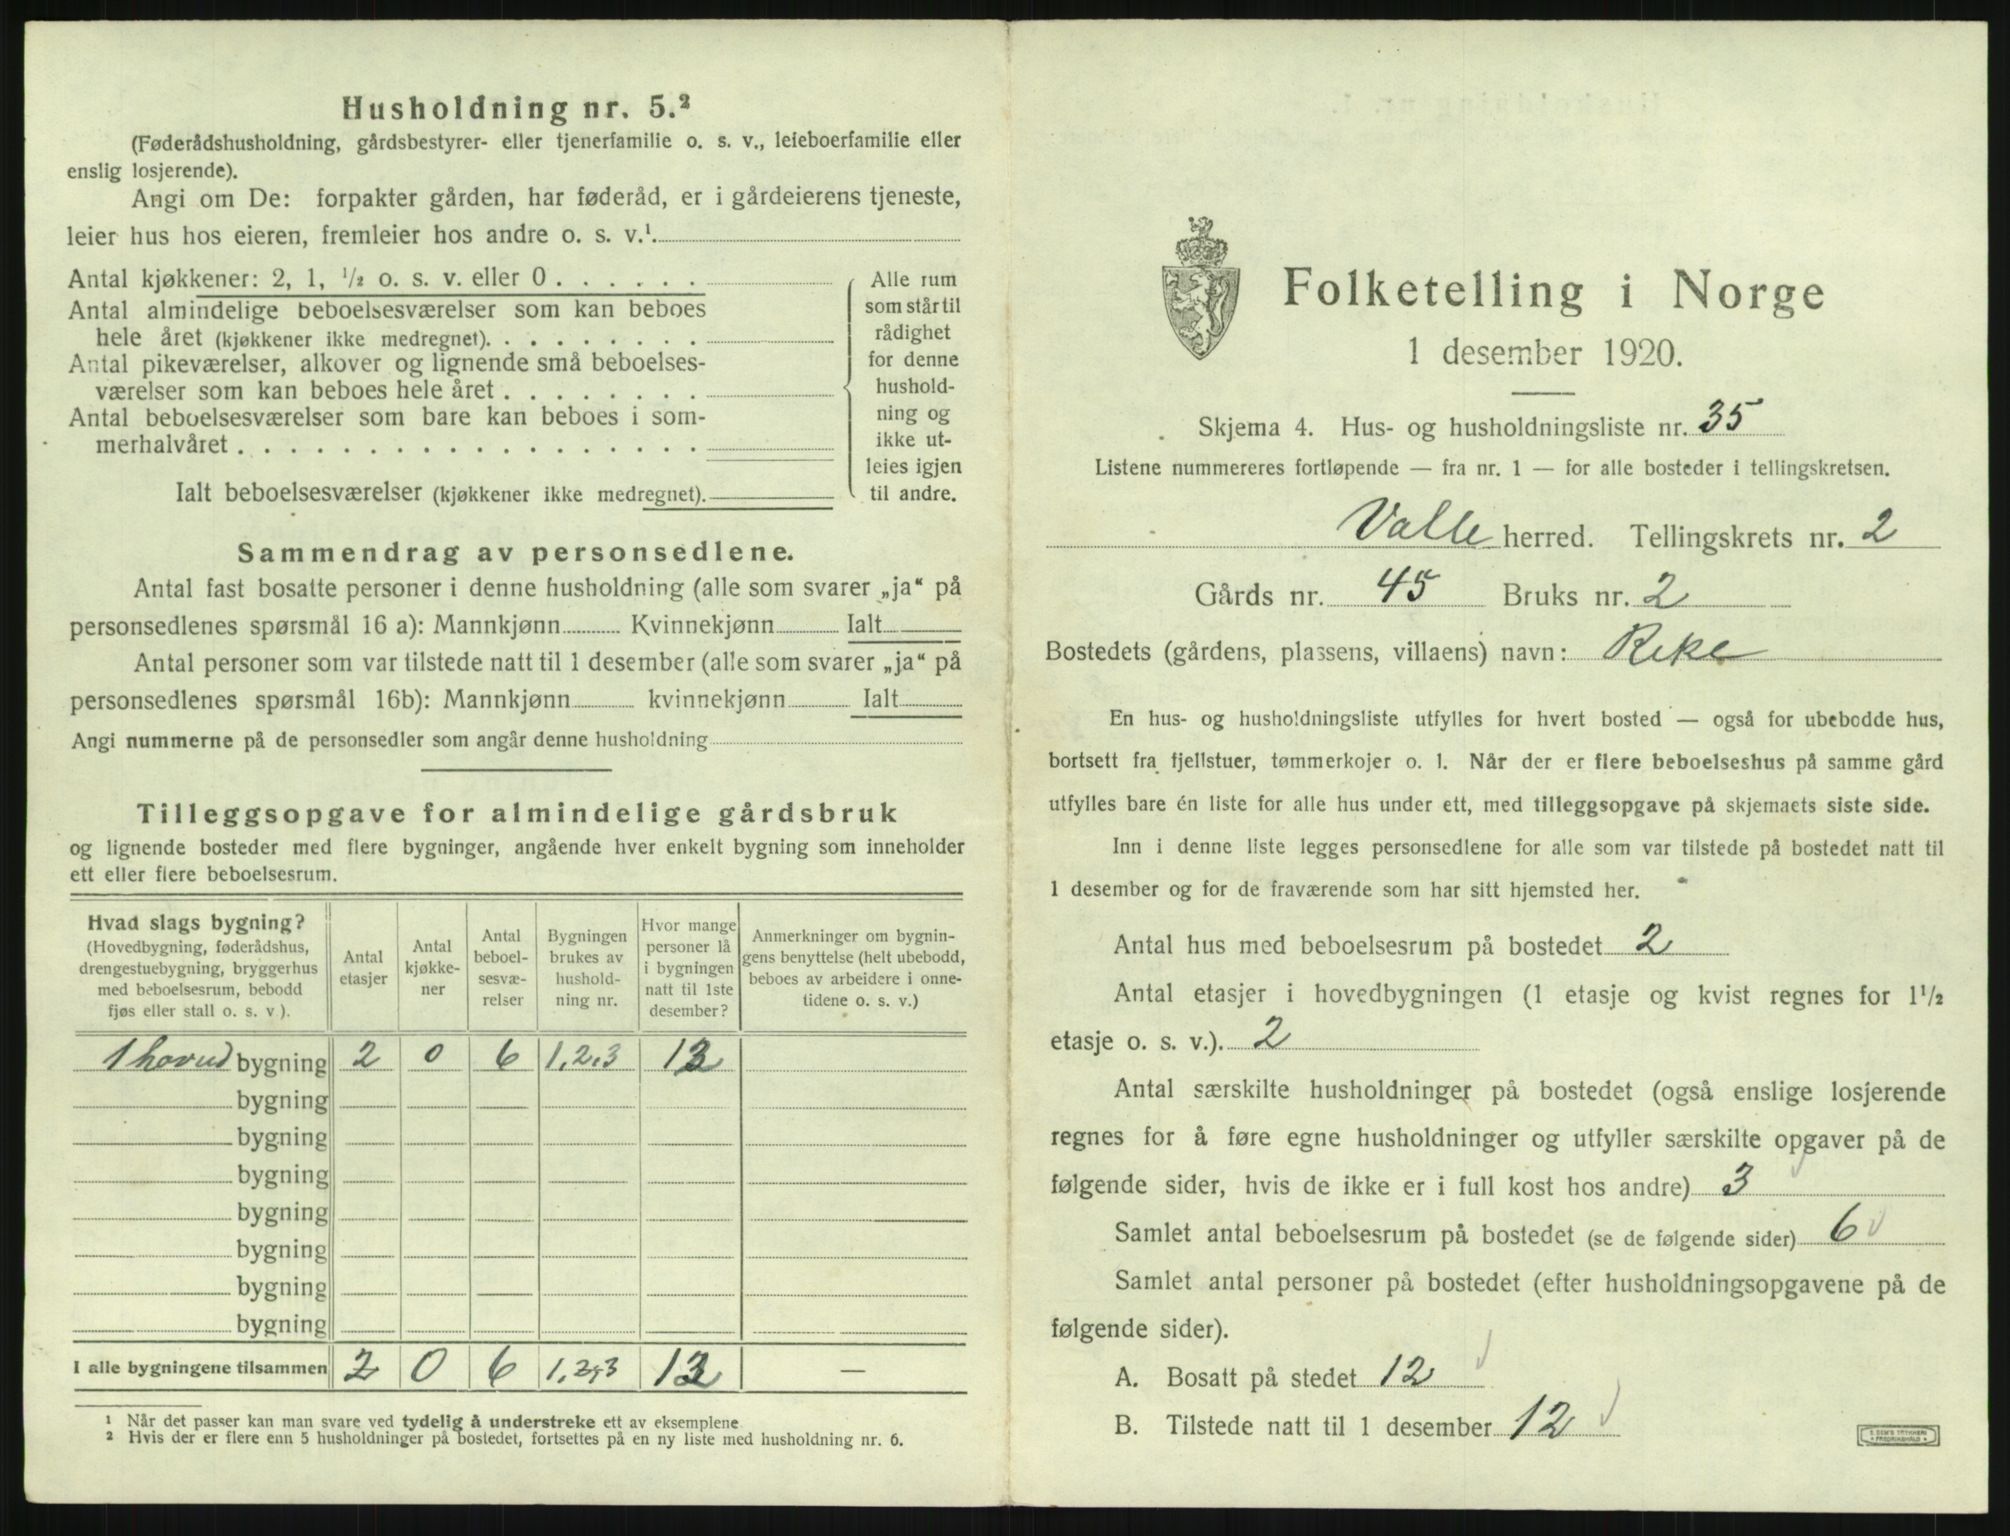 Husholdning nr. 5.²
(Føderådshusholdning, gårdsbestyrer- eller tjenerfamilie o. s. v., leieboerfamilie eller
enslig losjerende).
Angi om De: forpakter gården, har føderåd, er i gårdeierens tjeneste,
leier hus hos eieren, fremleier hos andre o. s. v.¹
Antal kjøkkener: 2, 1, ¹/₂ o. s. v. eller 0 . . . . . .
Antal almindelige beboelsesværelser som kan beboes
hele året (kjøkkener ikke medregnet). . . . . . . . .
Antal pikeværelser, alkover og lignende små beboelses-
værelser som kan beboes hele året . . . . . . . .
Antal beboelsesværelser som bare kan beboes i som-
merhalvåret . . . . . . . . . . . . . . . . . .
Ialt beboelsesværelser (kjøkkener ikke medregnet).
Alle rum
som står til
rådighet
for denne
hushold-
ning og
ikke ut-
leies igjen
til andre.
Sammendrag av personsedlene.
Antal fast bosatte personer i denne husholdning (alle som svarer „ja“ på
personsedlenes spørsmål 16 a): Mannkjønn Kvinnekjønn Ialt
Antal personer som var tilstede natt til 1 desember (alle som svarer „ja“ på
personsedlenes spørsmål 16b): Mannkjønn kvinnekjønn Ialt
Angi nummerne på de personsedler som angår denne husholdning
Tilleggsopgave for almindelige gårdsbruk
og lignende bosteder med flere bygninger, angående hver enkelt bygning som inneholder
ett eller flere beboelsesrum.
Hvad slags bygning?
(Hovedbygning, føderådshus,
drengestuebygning, bryggerhus
med beboelsesrum, bebodd
fjøs eller stall o. s. v ).
Antal
etasjer
Antal
kjøkke-
ner
Antal
beboel-
sesvæ-
relser
Bygningen
brukes av
hushold-
ning nr.
Hvor mange
personer lå
i bygningen
natt til 1ste
desember?
Anmerkninger om bygnin-
gens benyttelse (helt ubebodd,
beboes av arbeidere i onne-
tidene o. s. v.)
1 hovud bygning 2 0 6 1,2,3 12
bygning
bygning
bygning
bygning
bygning
bygning
bygning
I alle bygningene tilsammen 2 0 6 1,2,3 12 —
¹ Når det passer kan man svare ved tydelig å understreke ett av eksemplene
² Hvis der er flere enn 5 husholdninger på bostedet, fortsettes på en ny liste med husholdning nr. 6.
Folketelling i Norge
1 desember 1920.
Skjema 4. Hus- og husholdningsliste nr. 35
Listene nummereres fortløpende — fra nr. 1 — for alle bosteder i tellingskretsen.
Valle herred. Tellingskrets nr. 2
Gårds nr. 45 Bruks nr. 2
Bostedets (gårdens, plassens, villaens) navn: Rike
En hus- og husholdningsliste utfylles for hvert bosted — også for ubebodde hus,
bortsett fra fjellstuer, tømmerkojer o. l. Når der er flere beboelseshus på samme gård
utfylles bare én liste for alle hus under ett, med tilleggsopgave på skjemaets siste side.
Inn i denne liste legges personsedlene for alle som var tilstede på bostedet natt til
1 desember og for de fraværende som har sitt hjemsted her.
Antal hus med beboelsesrum på bostedet 2
Antal etasjer i hovedbygningen (1 etasje og kvist regnes for 1¹/₂
etasje o. s. v.). 2
Antal særskilte husholdninger på bostedet (også enslige losjerende
regnes for å føre egne husholdninger og utfyller særskilte opgaver på de
følgende sider, hvis de ikke er i full kost hos andre) 3
Samlet antal beboelsesrum på bostedet (se de følgende sider) 6
Samlet antal personer på bostedet (efter husholdningsopgavene på de
følgende sider).
A. Bosatt på stedet 12
B. Tilstede natt til 1 desember 12